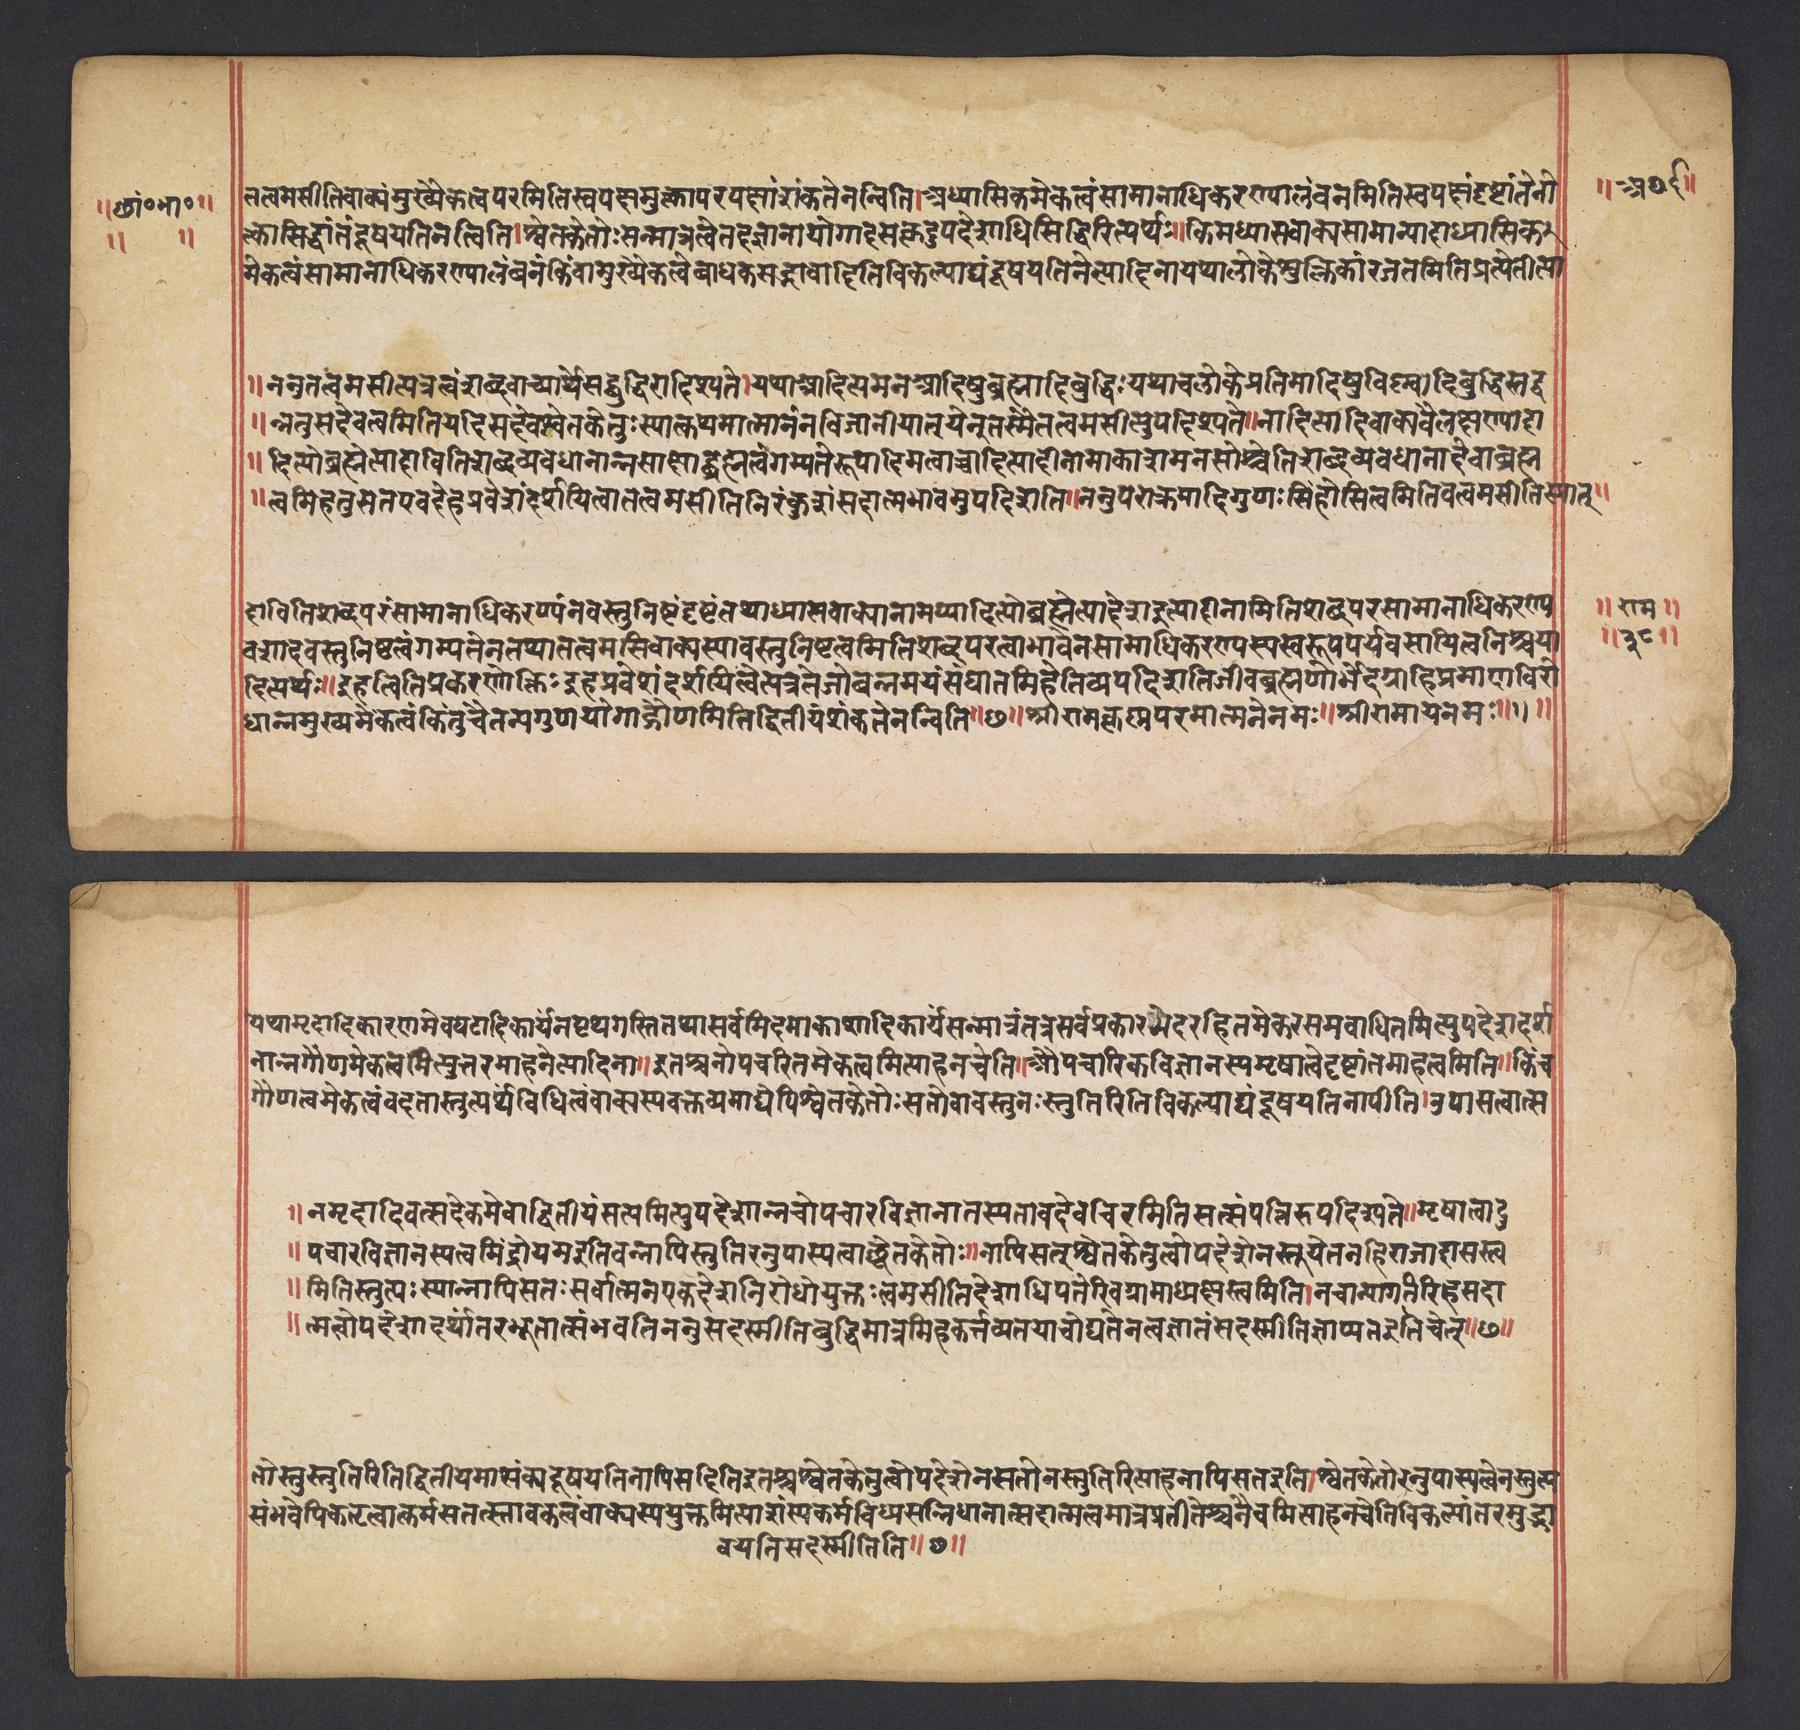 ॥छां॰भा॰॥
॥ ॥
तत्वमसीतिवाक्यंमुख्यैकत्वपरमितिस्वपक्षमुत्कापरपक्षांशंकतेनन्विति।अध्यासिकमेकत्वंसामानाधिकरण्यालंबनमितिस्वपक्षंदृष्टांतेनो
क्तोसिद्धांतंदूषयतिनत्विति।श्वेतकेतोःसन्मात्रत्वेतदज्ञानायोगादसकृदुपदेशाधिसिद्धिरित्यर्थः॥किमध्यासवाक्यसामान्यादाध्यासिक
मेकत्वंसामानाधिकरण्यालंबनंकिंवामुख्यैकत्वेबाधकसद्भावादितिविकल्पाद्यंदूषयतिनेत्यादिनायथालोकेशुक्तिकांरजतमितिप्रत्येतीत्या
॥ननुतत्वमसीत्यत्रत्वंशब्दवाच्यार्थेसद्बुद्धिरादिश्यते।यथाआदित्यमनआदिषुब्रह्मादिबुद्धिःयथाचलोकेप्रतिमादिषुविष्ण्वादिबुद्धिस्तद्व
॥न्नतुसदेवत्वमितियदिसदेवश्वेतकेतुःस्यात्कथमात्मानंनविजानीयात्येनतस्मैतत्वमसीत्युपदिश्यते॥नादित्यादिवाक्यवैलक्षण्यादा
॥दित्योब्रह्मेत्यादावितिशब्दव्यवधानान्नसाक्षाद्ब्रह्मत्वंगम्यतेरूपादिमत्वाच्चादित्यादीनामाकाशमनसोश्चेतिशब्दव्यवधानादेवाब्रह्म
॥त्वमिहतुसतएवदेहप्रवेशंदर्शयित्वातत्वमसीतिनिरंकुशंसदात्मभावमुपदिशति॥ननुपराक्रमादिगुणःसिंहोसित्वमितिवत्वमसीतिस्यात्॥
दावितिशब्दपरंसामानाधिकरण्यंनवस्तुनिष्टंदृष्टंतथाध्यासवाक्यानामप्यादित्योब्रह्मेत्यादेशइत्यादीनामितिशब्दपरसामानाधिकरण्य
वशादवस्तुनिष्टत्वंगम्यतेनतथातत्वमसिवाक्यस्यावस्तुनिष्टत्वमितिशब्दपरत्वाभावेनसामाधिकरण्यस्यस्वरूपपर्यवसायित्वनिश्चया
दित्यर्थः॥इहत्वितिप्रकरणोक्तिःइहप्रवेशंदर्शयित्वेत्यत्रतेजोबन्नमयंसंघातमिहेतिव्यपदिशतिजीवब्रह्मणोर्भेदग्राहिप्रमाणविरो
धान्नमुख्यमेकत्वंकिंतुचैतन्यगुणयोगाद्गौणमितिद्वितीयंशंकतेनन्विति॥छ॥श्रीरामकृष्णपरमात्मनेनमः॥श्रीरामायनमः॥१॥
॥राम॥
॥३८॥
यथामृदादिकारणमेवघटादिकार्यनपृथगस्तितथासर्वमिदमाकाशादिकार्यसन्मात्रंतत्रसर्वप्रकारभेदरहितमेकरसमबाधितमित्युपदेशदर्श
नान्नगौणमेकत्वमित्युत्तरमाहनेत्यादिना॥इतश्चनोपचरितमेकत्वमित्याहनचेति॥औपचारिकविज्ञानस्यमृषात्वेदृष्टांतमाहत्वमिति॥किंच
गौणत्वमेकत्वंवदतास्तुत्यर्थंविधित्वंवाक्यस्यवक्तव्यमाद्येपिश्वेतकेतोःसतोवावस्तुनःस्तुतिरितिविकल्पाद्यंदूषयतिनापीति।उपासत्वात्स
॥नमृदादिवत्सदेकमेवाद्वितीयंसत्यमित्युपदेशान्नचोपचारविज्ञानात्तस्यतावदेवचिरमितिसत्संपत्तिरुपदिश्यते॥मृषात्वादु
॥पचारविज्ञानस्यत्वमिंद्रोयमइतिवन्नापिस्तुतिरनुपास्यत्वाच्छ्वेतकेतोः॥नापिसत्श्वेतकेतुत्वोपदेशेनस्तूयेतनहिराजादासस्त्व
॥मितिस्तुत्यःस्यान्नापिसतःसर्वात्मनएकदेशनिरोधोयुक्तःत्वमसीतिदेशाधिपतेरिवग्रामाध्यक्षस्त्वमिति।नचान्यागतिरिहसदा
॥त्मत्वोपदेशादर्थांतरभूतात्संभवतिननुसदस्मीतिबुद्धिमात्रमिहकर्त्तव्यतयाचोद्यतेनत्वज्ञातंसदस्मीतिज्ञाप्यतइतिचेत्॥छ॥
तोस्तुस्तुतिरितिद्वितीयमाशंक्यदूषयतिनापिसदितिइतश्चश्वेतकेतुत्वोपदेशेनसतोनस्तुतिरित्याहनापिसतइति।श्वेतकेतोरनुपास्यत्वेनस्तुत्य
संभवेपिकतृत्वात्कर्मसतत्स्तावकत्वंवाक्यस्ययुक्तमित्याशंस्यकर्मविध्यसन्निधानात्सदात्मत्वमात्रप्रतीतेश्चनैवमित्याहनचेतिविकल्पांतरमुद्भा
वयतिसदस्मीतिति॥छ॥